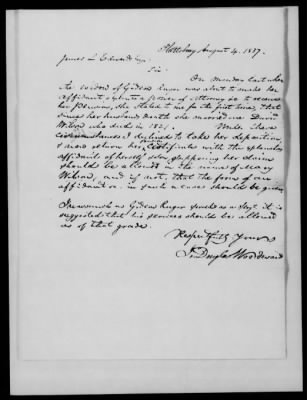 Plattsburg August 4. 1837.
James L Edwards Esq
Sir
On monday last when
the widow of Gideon Ruger was about to make her
affidavit & execute a power of attorney so to receive
her Pension, she stated to me for the first time, that
since her husband's death she married one David
Wilson who died in 1821. Under these
circumstances I declined to take her deposition
& now return her certificate with the explanatory
affidavit of herself, supposing her claim
should be allowed in the name of Mary
Wilson, and if not, that the form of our
affidavit in such a case should be given
Inasmuch as Gideon Ruger served as a Sergt. it is
suggested that his services should be allowed
as of that grade.
Respectfully Yours
Douglas Woodward